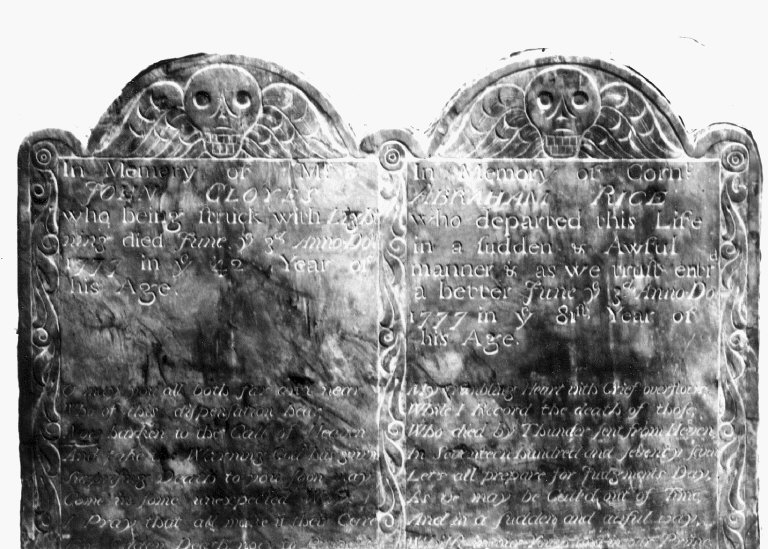 In Memory of Mr
JOHN CLOYES
who being struck with Light
ning died June yᵉ 3ᵈ Anno Dom
1777 in yᵉ 42 Year of
his Age.
all both far and near
of this dispensation hear
Now harken to the Call of Heaven
And take Warning God has given
Death to you soon may
Come in some unexpected
I Pray that all make it their Care
In Memory of Cornᵗ
ABRAHAM RICE
who departed this Life
in a sudden & Awful
manner & as we trust entrᵈ
a better June yᵉ 3ᵈ Anno Do
1777 in yᵉ 81ᵗʰ Year of
his Age.
My trembling Heart with Grief overflows
While I Record the death of those
Who died by Thunder sent from Heven
In Seventeen hundred and seventy seven
Let's all prepare for Judgments Day,
As we may be Called out of Time
And in a sudden and awful way,